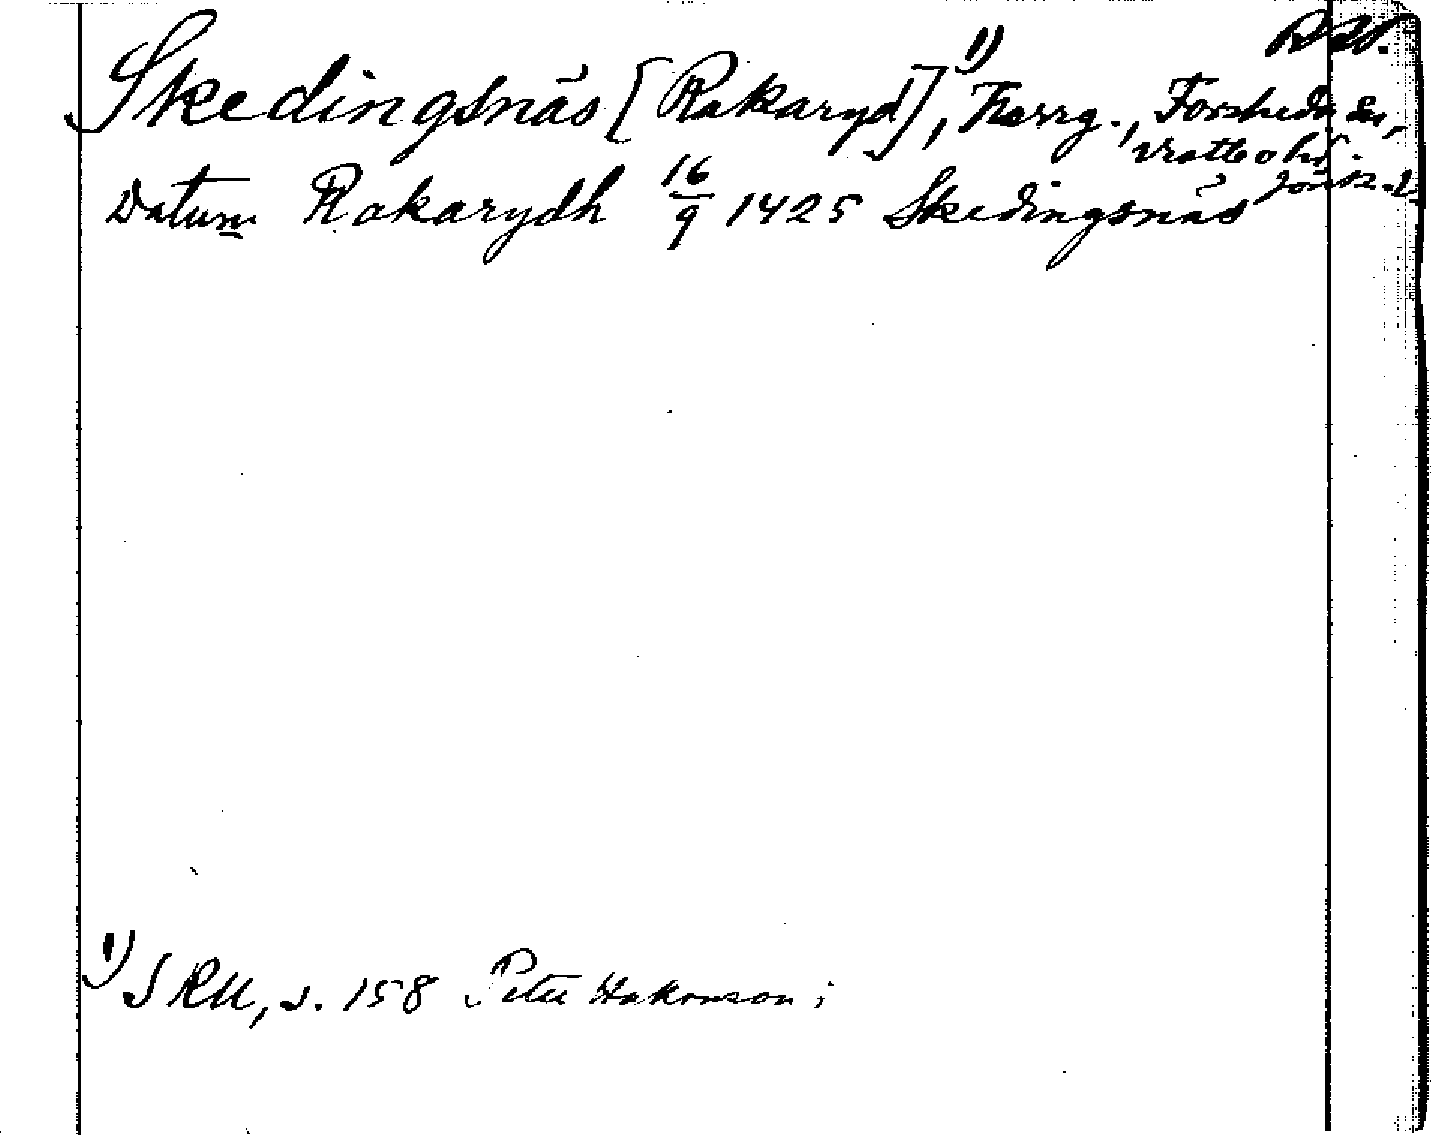 Skedingsnäs [Rakaryd],¹) Herrg., Forsheda sn,
Västbo hd.
Jönk. l.
Datum Rakarydh 16/9 1425 Skedingsnäs
¹) SRU, s. 158 Peter Hakonson;